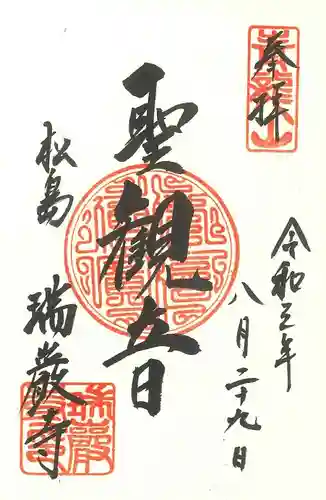 奉拝
令和元年
八月二十九日
聖観音
松島
瑞巌寺